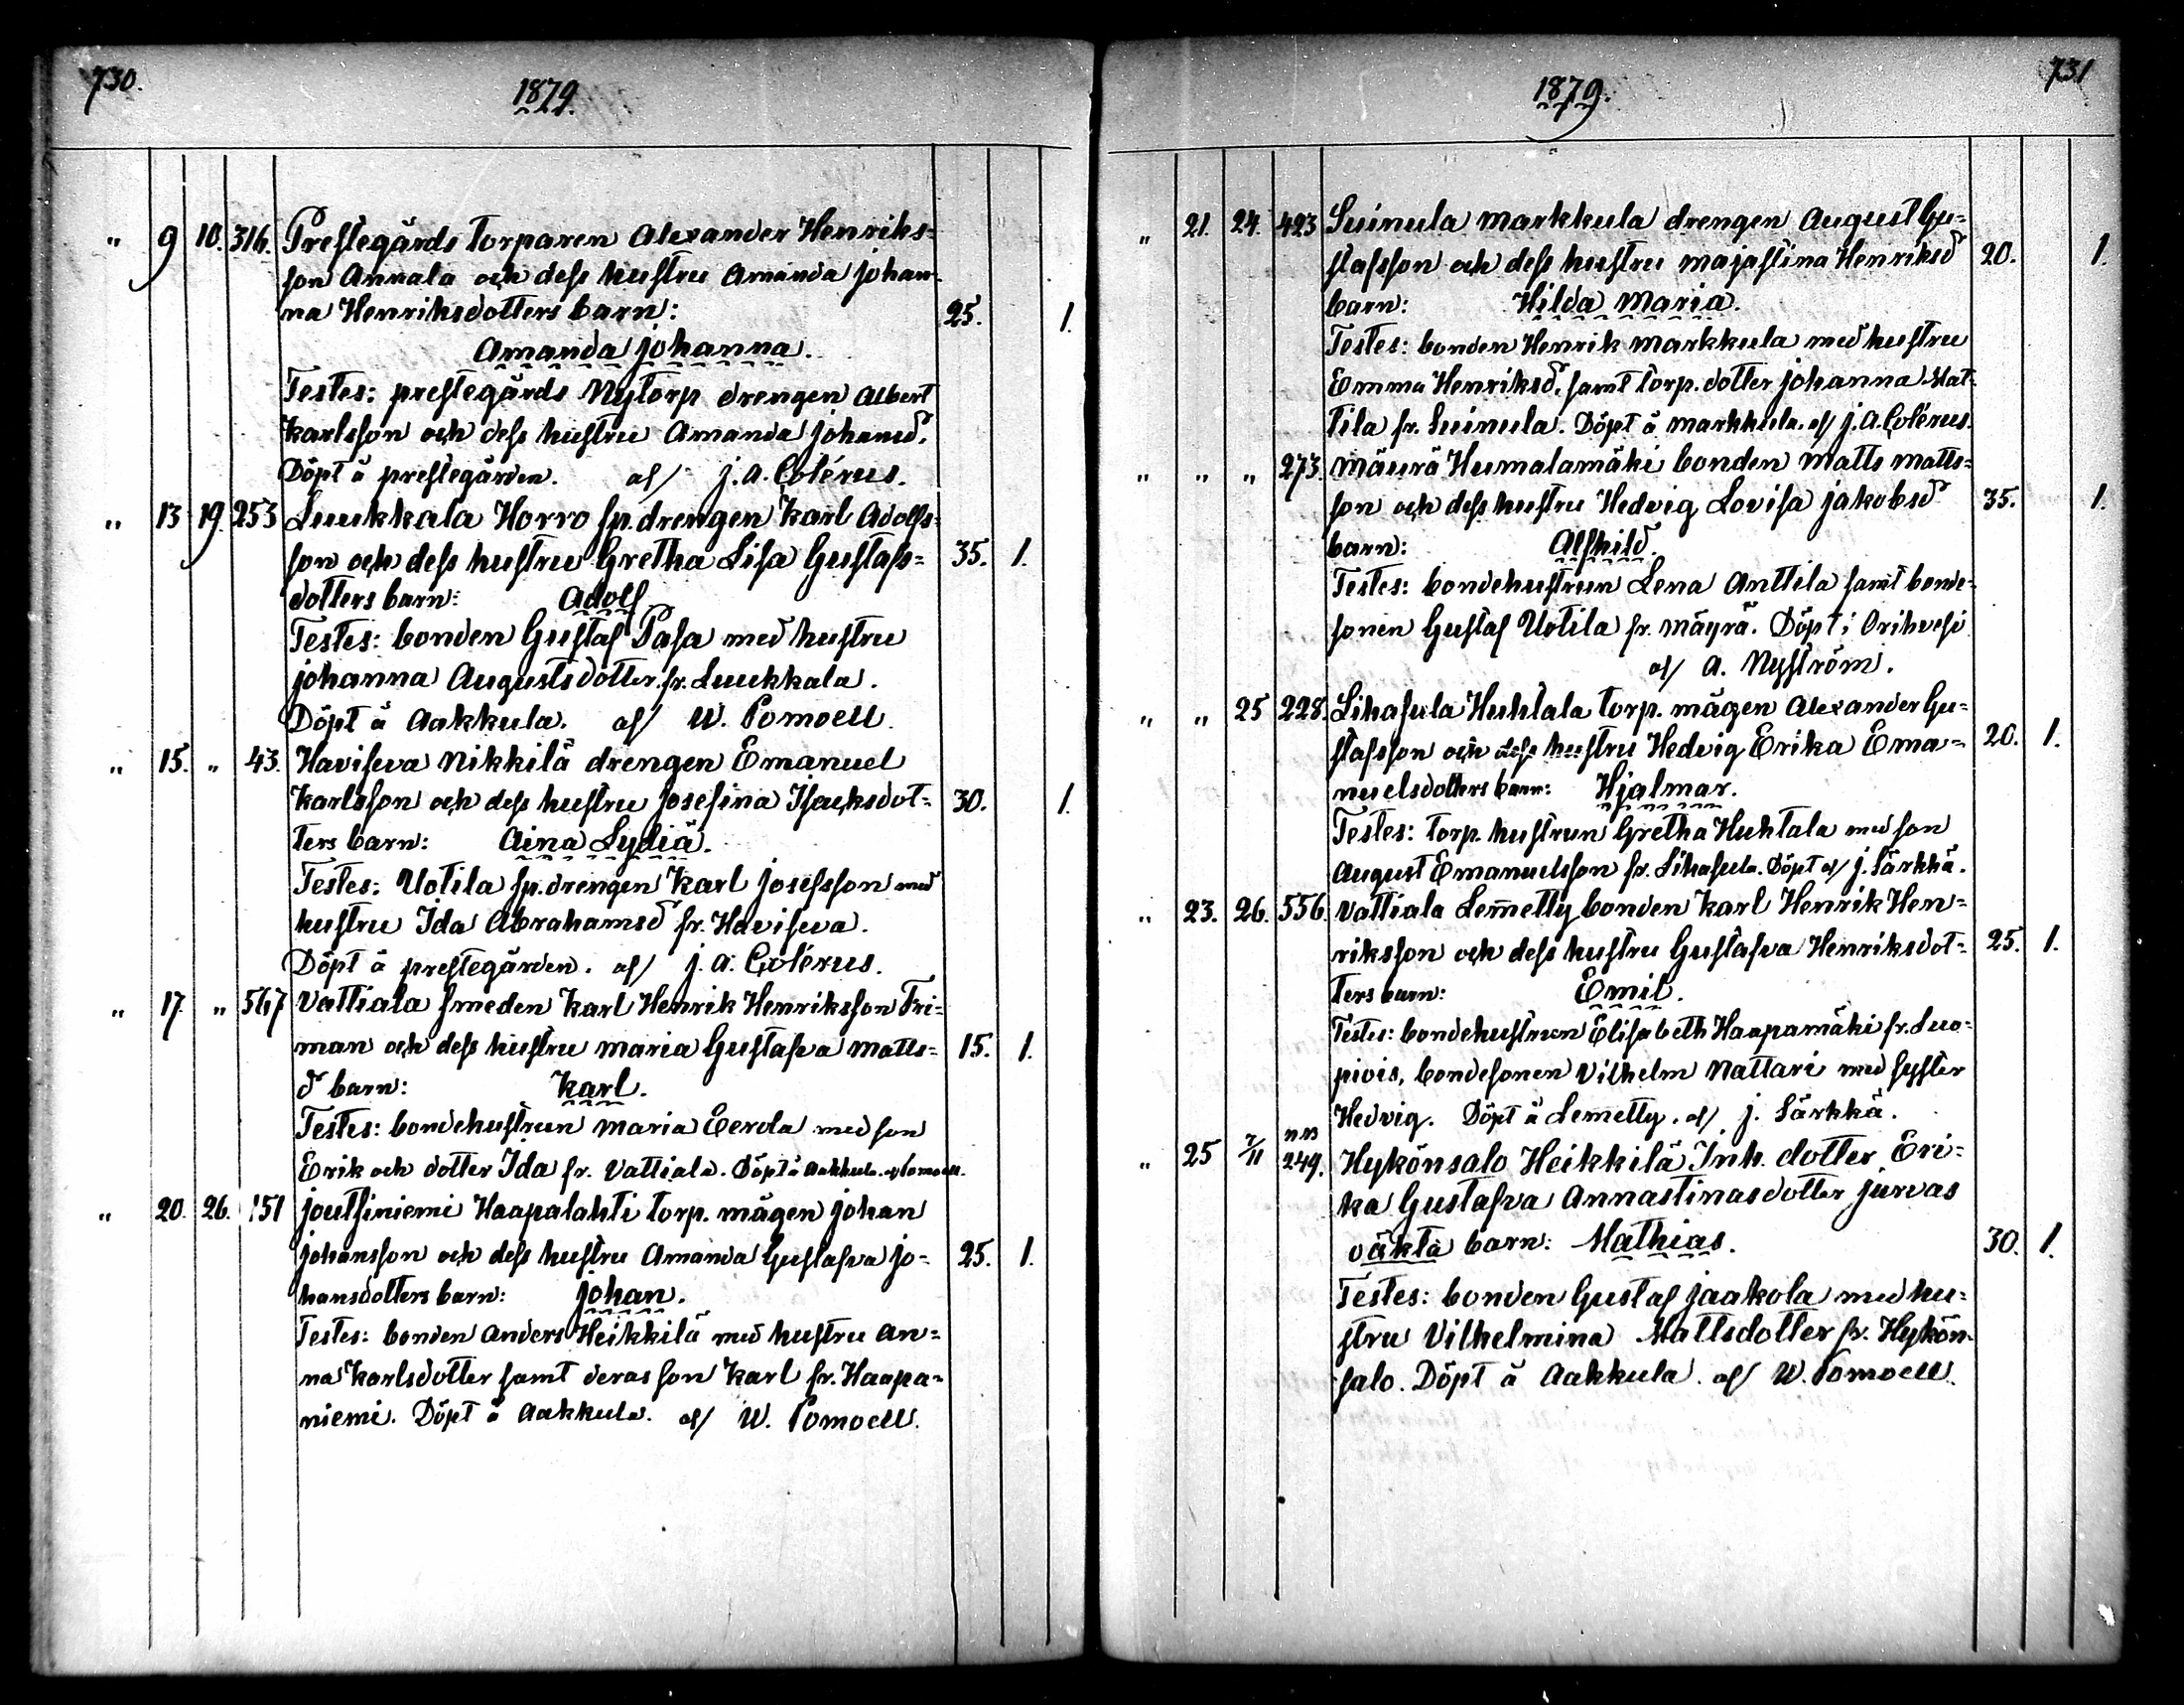 730.
1879.
" 9 10. 316. Prestegårds torparen Alexander Henriks=
son Annala och dess hustru Amanda Johan-
na Henriksdotters barn: 25. 1.
Amanda Johanna.
Testes: prestegårds Nytorp drengen Albert
Karlsson och dess hustru Amanda Johansd.
Döpt å prestegården. af/ J. A. Colérus.
" 13 19. 253 Luukkala Horro sp. drengen Karl Adolfs=
son och dess hustru Gretha Lisa Gustafs= 35. 1.
dotters barn: Adolf
Testes: bonden Gustaf Pasa med hustru
Johanna Augustsdotter fr. Luukkala.
Döpt å Aakkula. af/ W. Pomoell.
" 15. " 43. Haviseva Nikkilä drengen Emanuel
Karlsson och dess hustru Josefina Isacksdot= 30. 1.
ters barn: Aina Lydia.
Testes: Uotila sp. drengen Karl Josefsson med
hustru Ida Abrahamsd fr. Haviseva.
Döpt å prestegården. af/ J. A. Colérus.
" 17. " 567 Vattiala smeden Karl Henrik Henriksson Fri=
man och dess hustru Maria Gustafva Matts= 15. 1.
d barn: Karl.
Testes: bondehustrun Maria Eerola med son
Erik och dotter Ida fr. Vattiala. Döpt å Aakkula. af Pomoell.
" 20. 26. 151 Joutsiniemi Haapalahti torp. mågen Johan
Johansson och dess hustru Amanda Gustafva Jo= 25. 1.
hansdotters barn: Johan.
Testes: bonden Anders Heikkilä med hustru An=
na Karlsdotter samt deras son Karl fr. Haapa=
niemi. Döpt å Aakkula. af/ W. Pomoell.
731
1879.
" 21. 24. 423 Suinula Markkula drengen August Gu=
stafsson och dess hustru Majastina Henriksd 20. 1.
barn: Hilda Maria.
Testes: bonden Henrik Markkula med hustru
Emma Henriksd. samt torp. dotter Johanna Mat-
tila fr. Suinula. Döpt å Markkula. af/ J. A. Colérus.
" " " 273. Mäurä Humalamäki bonden Matts Matts=
son och dess hustru Hedvig Lovisa Jakobsd 35. 1.
barn: Alfhild.
Testes: bondehustrun Lena Anttila samt bonde-
sonen Gustaf Uotila fr. Mäyrä. Döpt i Orihvesi
af/ A. Nyström.
" " 25 228. Lihasula Huhtala torp. mågen Alexander Gu=
stafsson och dess hustru Hedvig Erika Ema= 20. 1.
nuelsdotters barn: Hjalmar.
Testes: torp. hustrun Gretha Huhtala med son
August Emanuelsson fr. Lihasula. Döpt af/ J. Särkkä.
" 23. 26. 556. Vattiala Lem̄etty bonden Karl Henrik Hen=
riksson och dess hustru Gustafva Henriksdot= 25. 1.
ters barn: Emil.
Testes: bondehustrun Elisabeth Haapamäki fr. Luo=
pivis, bondesonen Vilhelm Nattari med syster
Hedvig. Döpt å Lemetty. af/ J. Särkkä.
" 25 7/11 249. Hykönsalo Heikkilä Inh. dotter Eri=
ka Gustafva Annastinasdotter Jurvas
oäkta barn: Mathias. 30. 1.
Testes: bonden Gustaf Jaakola med hu=
stru Vilhelmina Mattsdotter fr. Hykön-
salo. Döpt å Aakkula. af/ W. Pomoell.